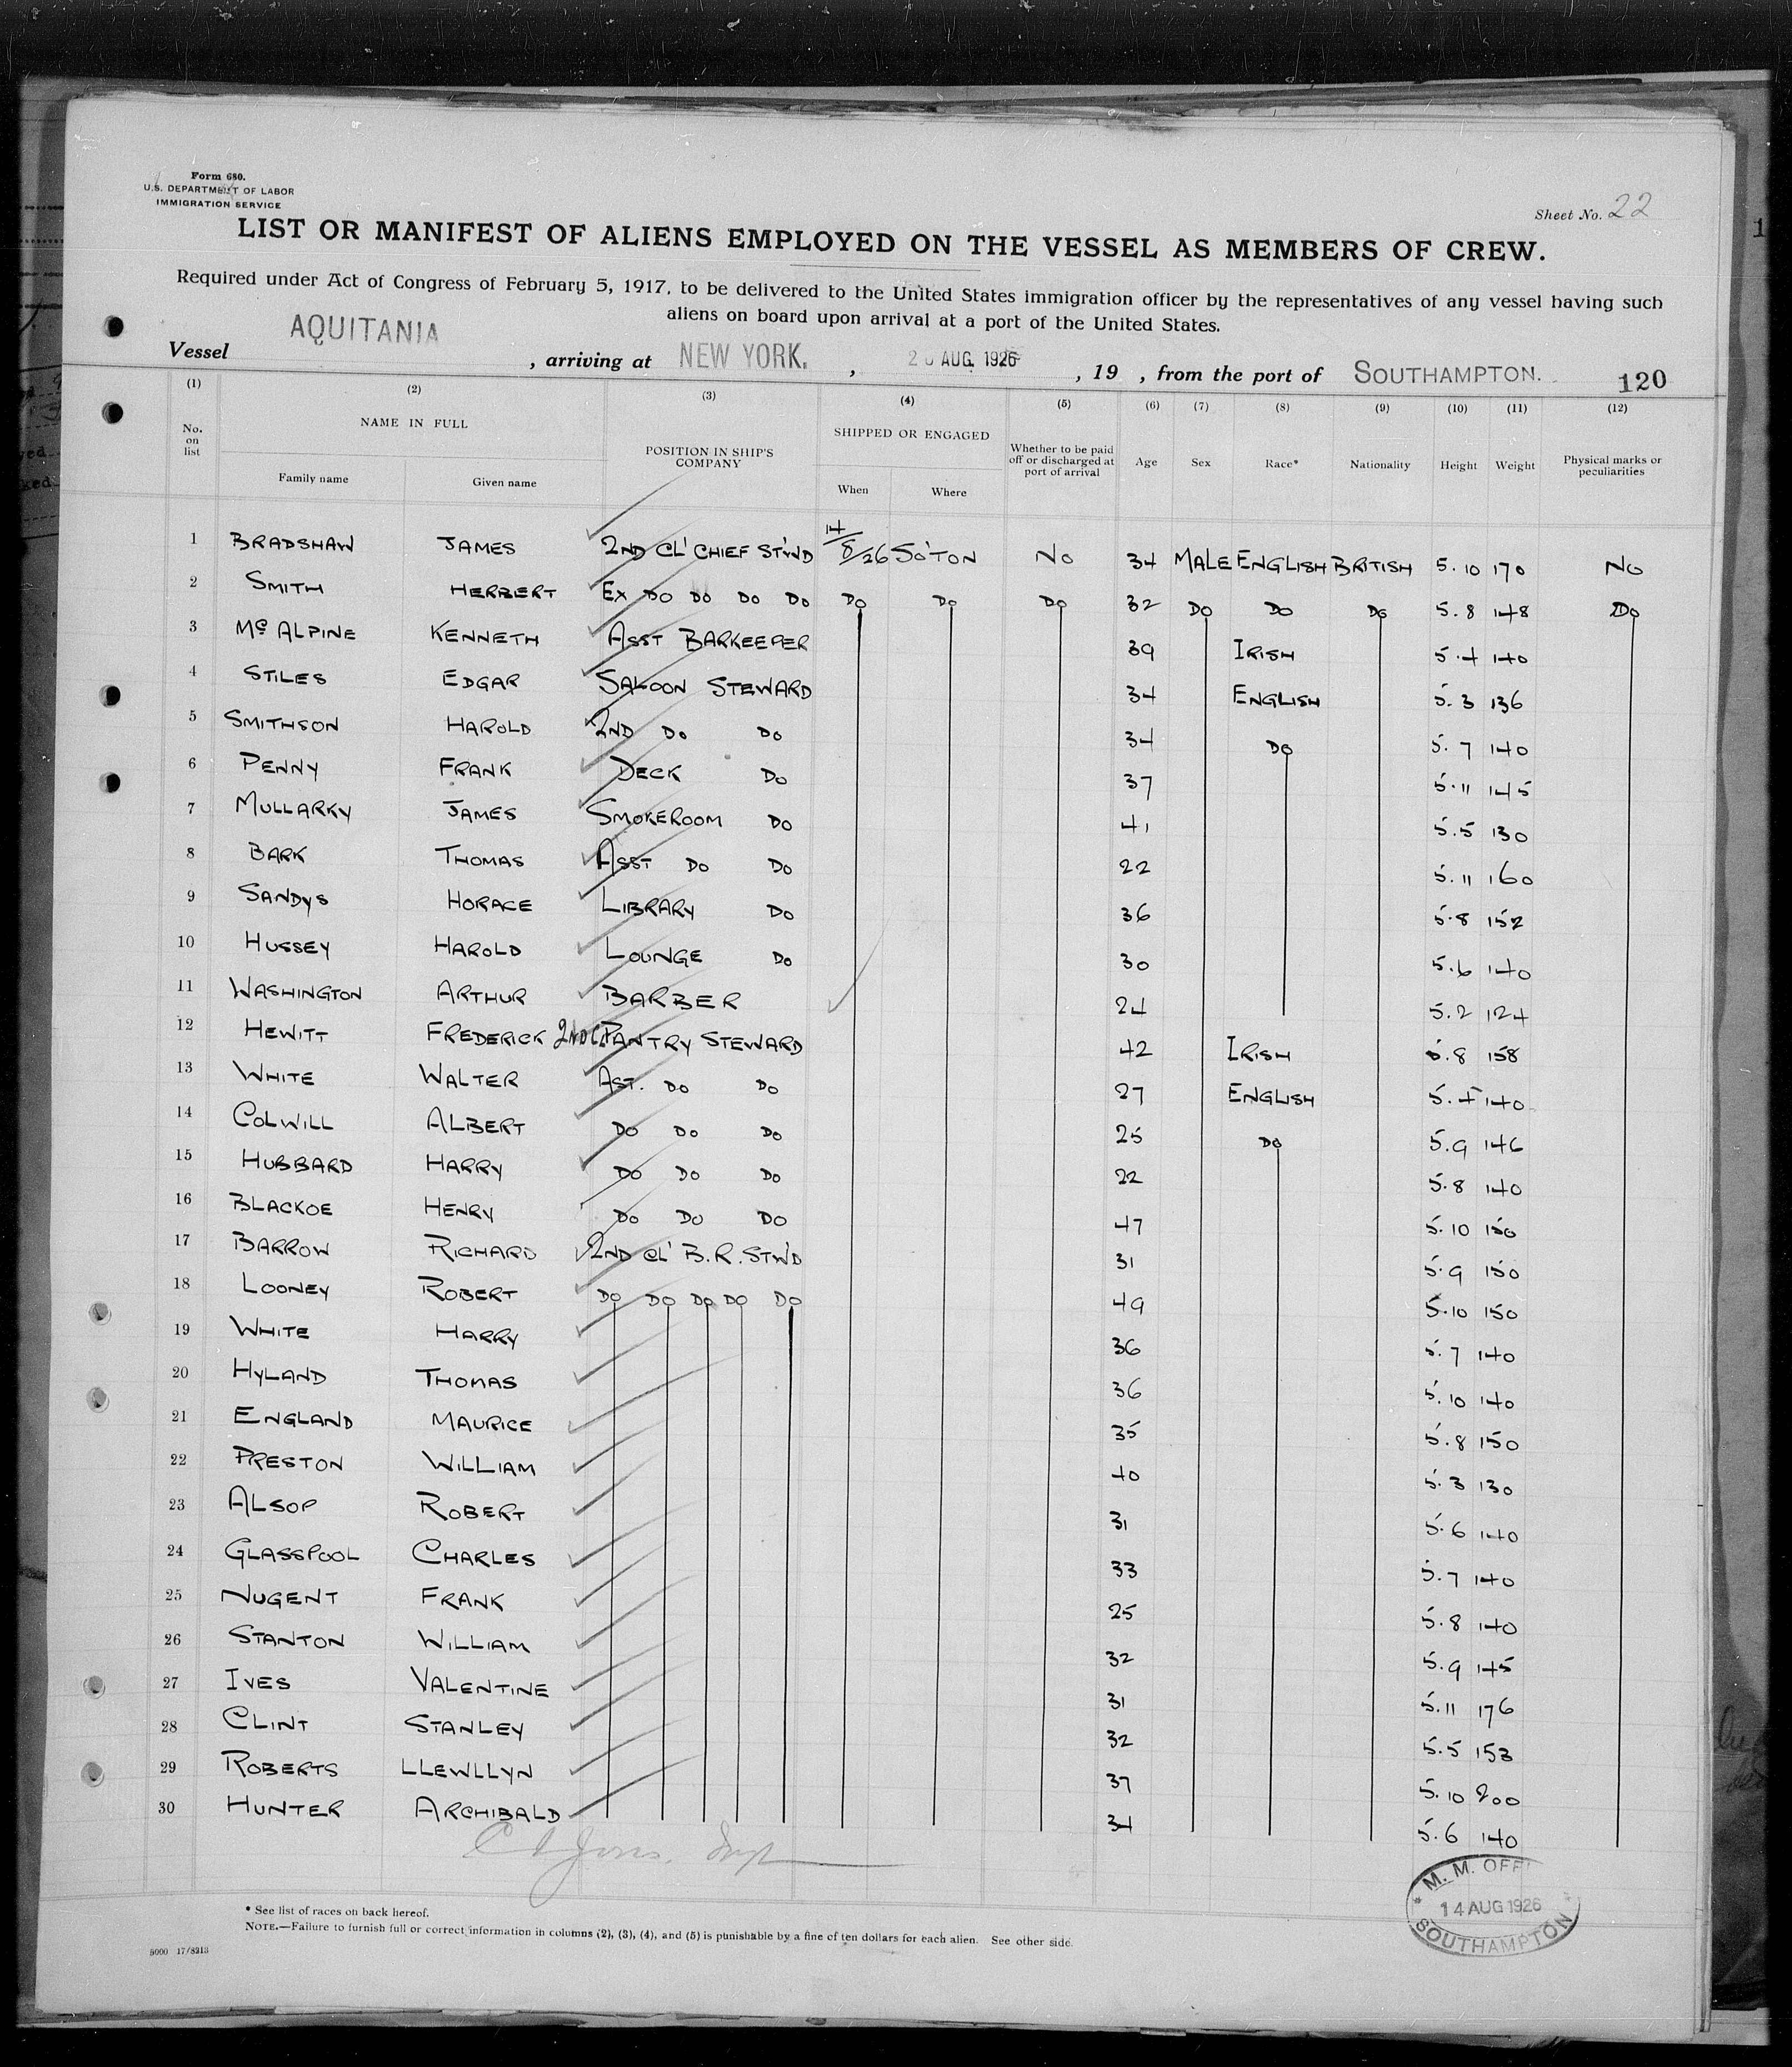 Form 680.
U.S. DEPARTMENT OF LABOR
IMMIGRATION SERVICE
Sheet No. 22
LIST OR MANIFEST OF ALIENS EMPLOYED ON THE VESSEL AS MEMBERS OF CREW.
Required under Act of Congress of February 5, 1917, to be delivered to the United States immigration officer by the representatives of any vessel having such
aliens on board upon arrival at a port of the United States.
Vessel AQUITANIA , arriving at NEW YORK. , 20 AUG. 1926 , 19 , from the port of SOUTHAMPTON. 120
(1) (2) (3) (4) (5) (6) (7) (8) (9) (10) (11) (12)
No. on list NAME IN FULL POSITION IN SHIP'S COMPANY SHIPPED OR ENGAGED Whether to be paid off or discharged at port of arrival Age Sex Race* Nationality Height Weight Physical marks or peculiarities
Family name Given name When Where
1 BRADSHAW JAMES 2ND CL' CHIEF ST'WD 14/8/26 SO'TON NO 34 MALE ENGLISH BRITISH 5.10 170 NO
2 SMITH HERBERT EX DO DO DO DO DO DO DO 32 DO DO DO 5.8 148 DO
3 McALPINE KENNETH ASST BARKEEPER 39 IRISH 5.4 140
4 STILES EDGAR SALOON STEWARD 34 ENGLISH 5.3 136
5 SMITHSON HAROLD 2ND DO DO 34 DO 5.7 140
6 PENNY FRANK DECK DO 37 5.11 145
7 MULLARKY JAMES SMOKEROOM DO 41 5.5 130
8 BARK THOMAS ASST DO DO 22 5.11 160
9 SANDYS HORACE LIBRARY DO 36 5.8 152
10 HUSSEY HAROLD LOUNGE DO 30 5.6 140
11 WASHINGTON ARTHUR BARBER 24 5.2 124
12 HEWITT FREDERICK 2ND CL PANTRY STEWARD 42 IRISH 5.8 158
13 WHITE WALTER AST. DO DO 27 ENGLISH 5.4 140
14 COLWILL ALBERT DO DO DO 25 DO 5.9 146
15 HUBBARD HARRY DO DO DO 22 5.8 140
16 BLACKOE HENRY DO DO DO 47 5.10 150
17 BARROW RICHARD 2ND CL' B.R. STW'D 31 5.9 150
18 LOONEY ROBERT DO DO DO DO DO 49 5.10 150
19 WHITE HARRY 36 5.7 140
20 HYLAND THOMAS 36 5.10 140
21 ENGLAND MAURICE 35 5.8 150
22 PRESTON WILLIAM 40 5.3 130
23 ALSOP ROBERT 31 5.6 140
24 GLASSPOOL CHARLES 33 5.7 140
25 NUGENT FRANK 25 5.8 140
26 STANTON WILLIAM 32 5.9 145
27 IVES VALENTINE 31 5.11 176
28 CLINT STANLEY 32 5.5 153
29 ROBERTS LLEWLLYN 37 5.10 200
30 HUNTER ARCHIBALD 34 5.6 140
* See list of races on back hereof.
NOTE.—Failure to furnish full or correct information in columns (2), (3), (4), and (5) is punishable by a fine of ten dollars for each alien. See other side.
5000 17/8213
M. M. OFFI
14 AUG 1926
SOUTHAMPTON